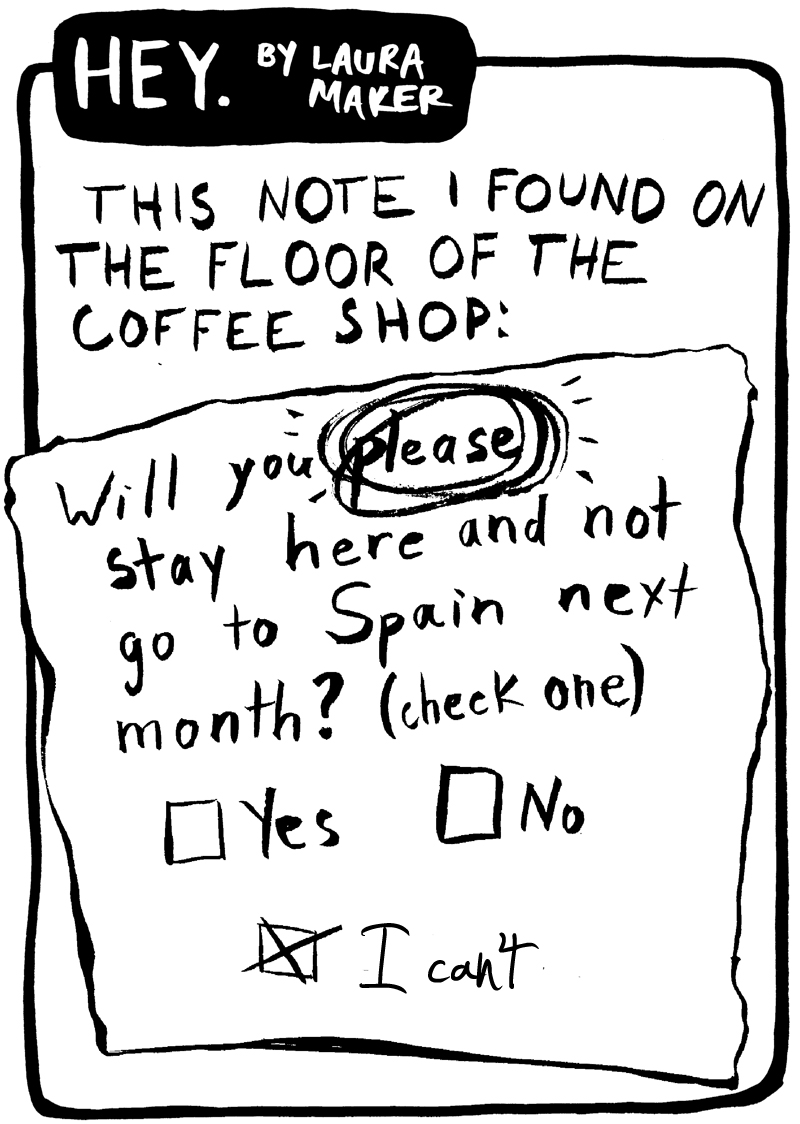 HEY. BY LAURA
MAKER
THIS NOTE I FOUND ON
THE FLOOR OF THE
COFFEE SHOP:
Will you please
stay here and not
go to Spain next
month? (check one)
Yes No
I can't